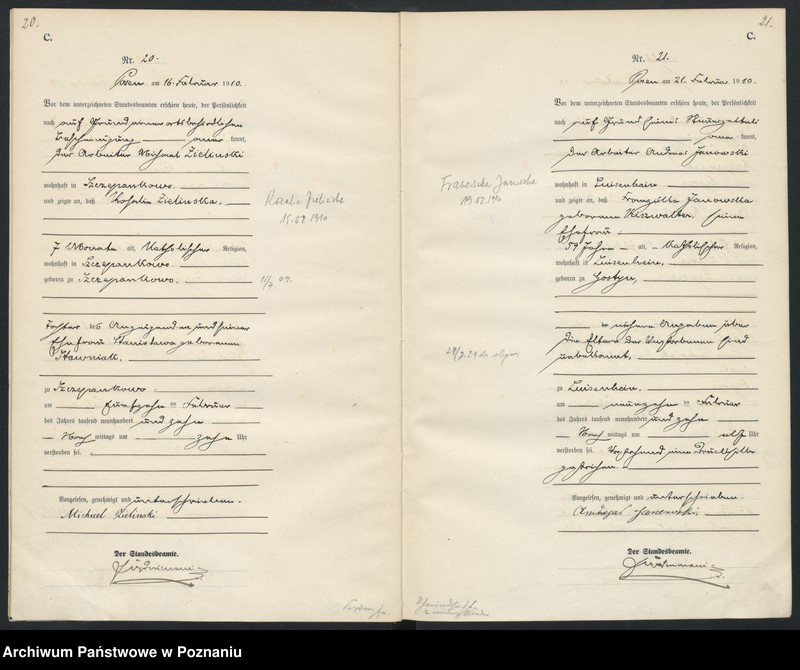 20.
C.
Nr. 20.
Posen am 16. Februar 1910.
Vor dem unterzeichneten Standesbeamten erschien heute, der Persönlichkeit
nach auf Grund einer ortsbehördlichen
Bescheinigung kannt,
der Arbeiter Michael Zielinski
wohnhaft in Szczepankowo.
und zeigte an, daß Rosalia Zielinska.
Rozalia Zielińska
15.02.1910
7 Monate alt, Katholischer Religion,
wohnhaft in Szczepankowo.
geboren zu Szczepankowo.
1/7 09.
Tochter des Anzeigenden und seiner
Ehefrau Stanislawa geborenen
Stawniak.
zu Szczepankowo
am fünfzehn ten Februar
des Jahres tausend neunhundert und zehn
Nach mittags um zehn Uhr
verstorben sei.
Vorgelesen, genehmigt und unterschrieben.
Michael Zielinski
Der Standesbeamte.
21.
C.
Nr. 21.
Posen am 21. Februar 1910.
Vor dem unterzeichneten Standesbeamten erschien heute, der Persönlichkeit
nach auf Grund seines Steuerzettels
kannt,
der Arbeiter Andreas Janowski
wohnhaft in Luisenhain
und zeigte an, daß Franziska Janowska
geborenen seine
Ehefrau
Franciszka Janowska
19.02.1910
59 Jahre alt, Katholischer Religion,
wohnhaft in Luisenhain,
geboren zu Gostyn,
nähere Angaben über
die Eltern der Verstorbenen sind
unbekannt,
zu Luisenhain.
am neunzehn ten Februar
des Jahres tausend neunhundert und zehn
Nach mittags um elf Uhr
verstorben sei. Vorstehend eine Druckstelle
gestrichen.
Vorgelesen, genehmigt und unterschrieben
Andrzej Janowski,
Der Standesbeamte.
Archiwum Państwowe w Poznaniu